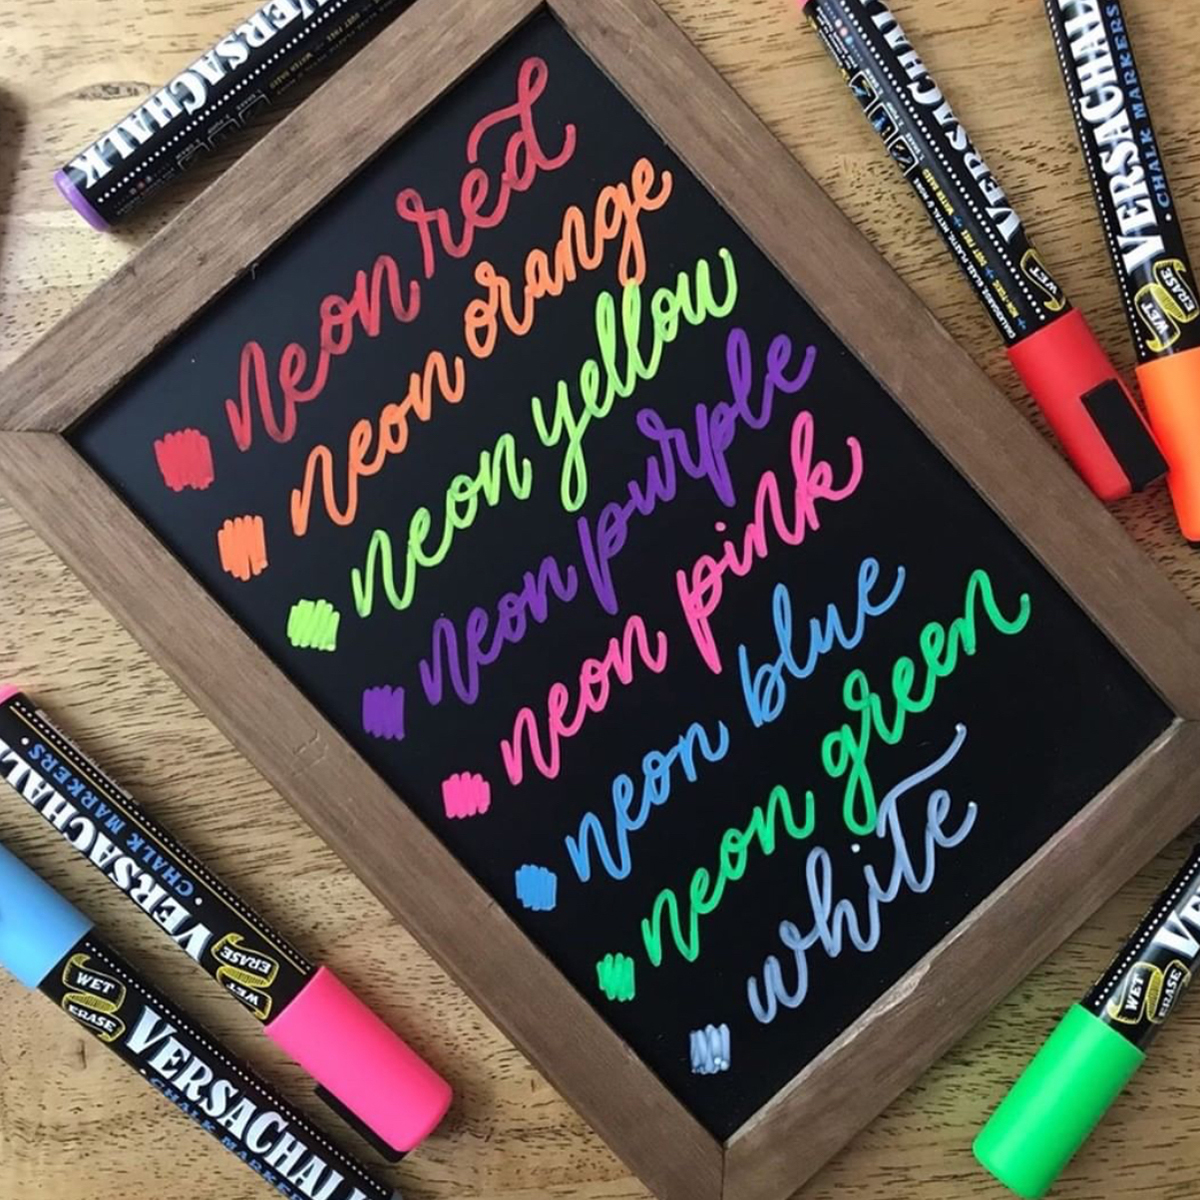 neon red
neon orange
neon yellow
neon purple
neon pink
neon blue
neon green
white
VERSACHALK
VERSACHAL
WET
VERSACHAL
CHALK MARKERS
WET
ERASE
VERSACHAL
CHALK MARKERS
VERSACHAL
WET
ERASE
WET
ERASE
VERSACHAL
CHALK MARKER
WET
ERASE